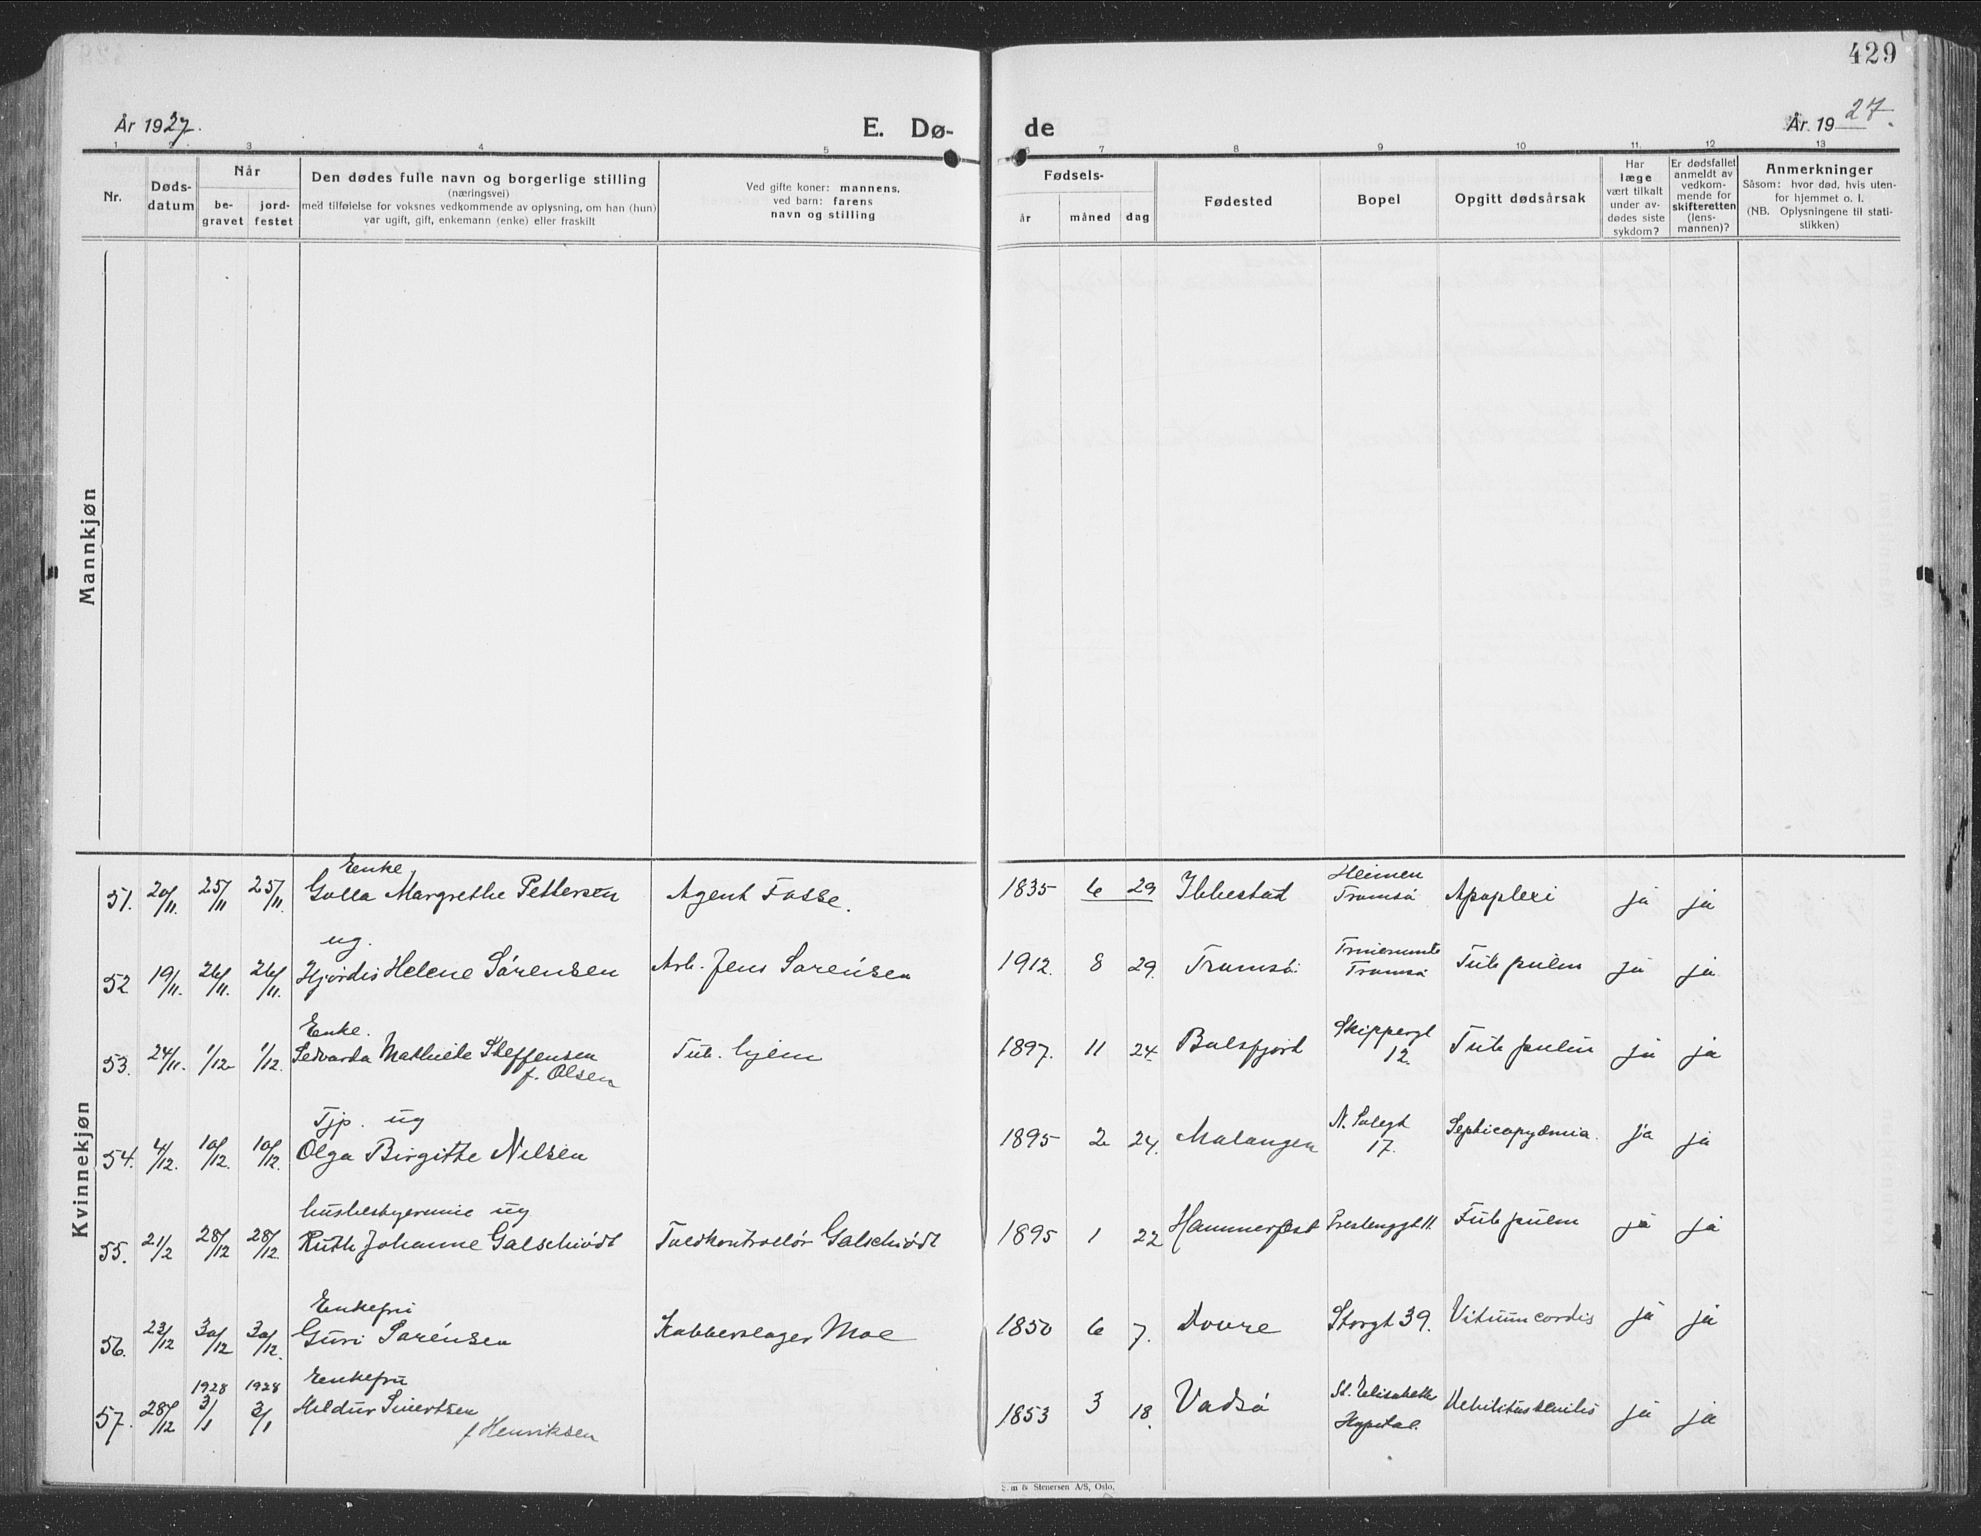 429
År 1927.
E. Dø-
de
År 1927.
1 2 3 4 5 6 7 8 9 10 11 12 13
Nr.
Døds-
datum
Når
be-
gravet
jord-
festet
Den dødes fulle navn og borgerlige stilling
(næringsvei)
med tilføielse for voksnes vedkommende av oplysning, om han (hun)
var ugift, gift, enkemann (enke) eller fraskilt
Ved gifte koner: mannens,
ved barn: farens
navn og stilling
Fødsels-
år måned dag
Fødested
Bopel
Opgitt dødsårsak
Har
læge
vært tilkalt
under av-
dødes siste
sykdom?
Er dødsfallet
anmeldt av
vedkom-
mende for
skifteretten
(lens-
mannen)?
Anmerkninger
Såsom: hvor død, hvis uten-
for hjemmet o. l.
(NB. Oplysningene til stati-
stikken)
Mannkjøn
Kvinnekjøn
Enke
Heimen
51. 20/11. 25/11 25/11. Golla Margrethe Pettersen Agent Fosse. 1835 6 29 Ibbestad Tromsø Apoplexi ja ja
ug.
52 19/11. 26/11. 26/11. Hjørdis Helene Sørensen Arb. Jens Sørensen 1912. 8 29. Tromsø Tromsø Tub pulm ja ja
Enke.
Skippergt
53. 24/11. 1/12 1/12. Sedvarda Mathilde Steffensen Tub. hjem 1897. 11 24 Balsfjord 12. Tub pulm ja ja
f. Olsen
Tjp. ug
N. Salegt
54. 4/12. 10/12. 10/12. Olga Birgitte Nilsen 1895 2 24. Malangen 17. Septicopyæmia. ja ja
husbestyerinne ug
55. 21/2 28/12 28/12. Ruth Johanne Galschiødt Toldkontrollør Galschiødt 1895 1 22 Hammerfest Prestenggt 11 Tub pulm ja ja
Enkefru
56. 23/12 30/12 30/12. Guri Sørensen Kobberslager Moe 1850 6 7. Dovre Storgt 39. Vitium cordis ja ja
1928 1928 Enkefru
St. Elisabeth
57. 28/12 3/1 3/1 Hildur Sivertsen 1853 3 18. Vadsø Hospital. Debilitas senilis ja ja
f Henriksen
& Stenersen A/S, Oslo.